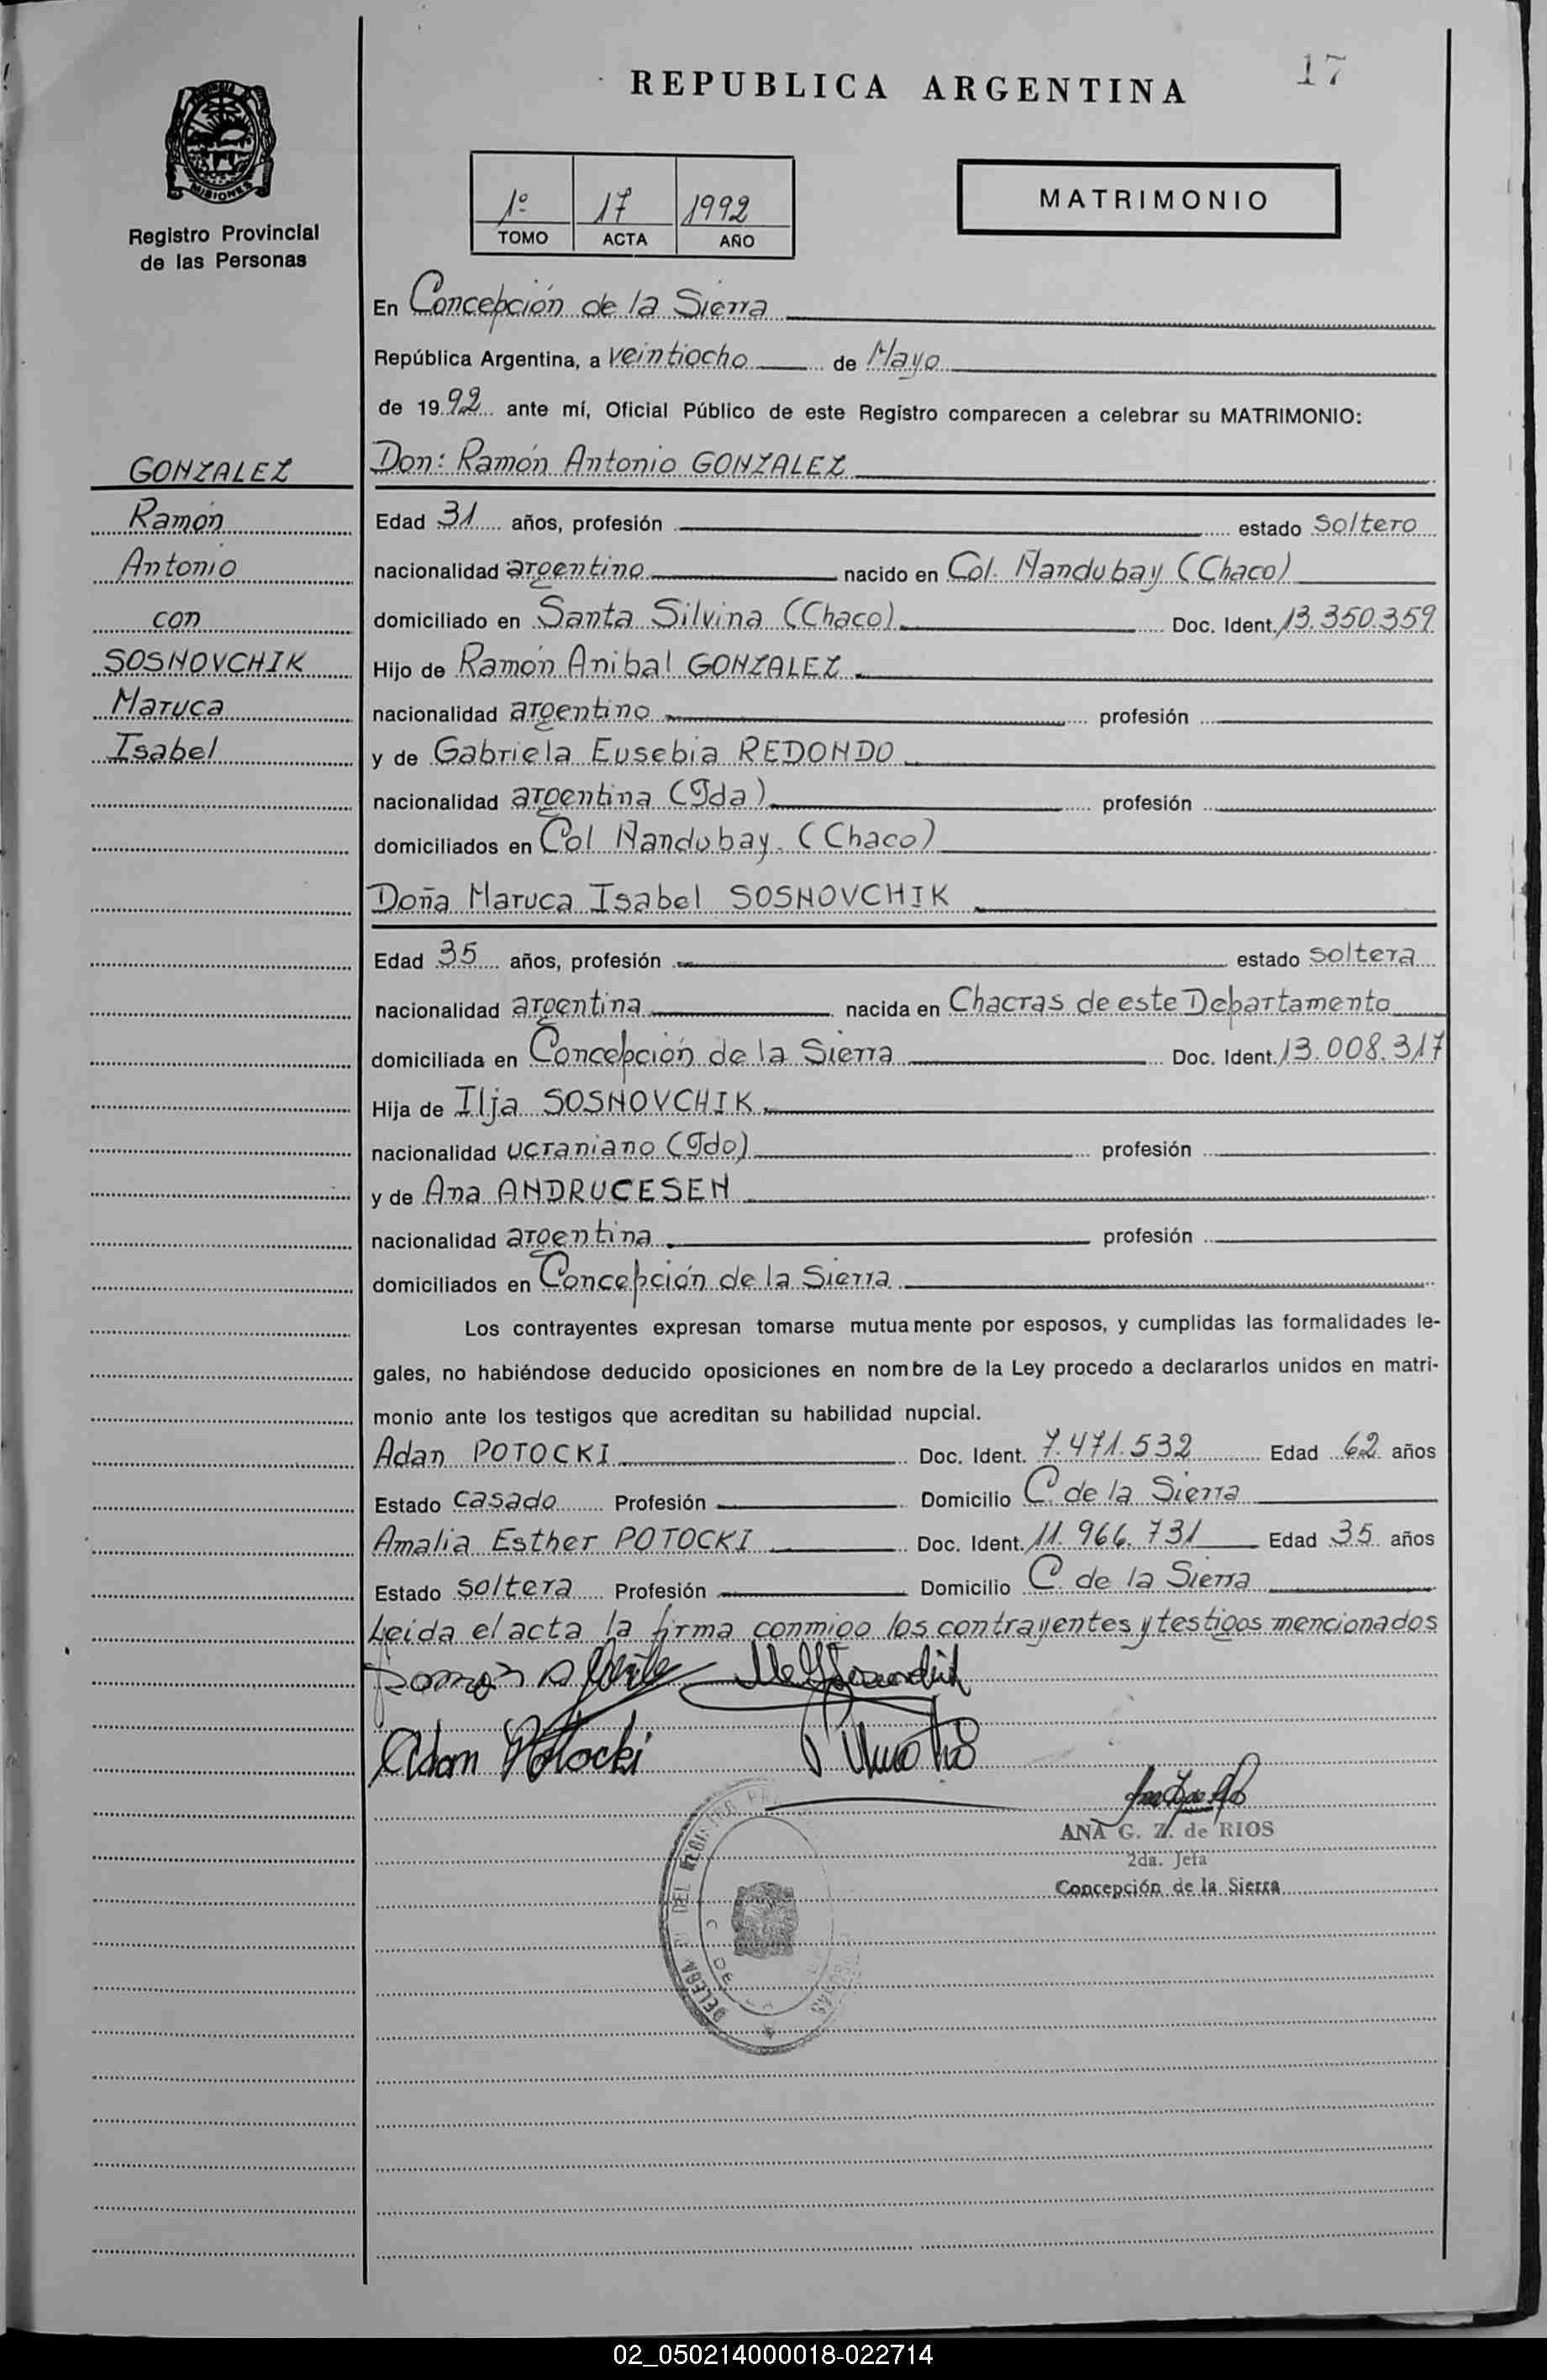 17
REPUBLICA ARGENTINA
MISIONES
Registro Provincial
de las Personas
1º 17 1992
TOMO ACTA AÑO
MATRIMONIO
En Concepción de la Sierra
República Argentina, a veintiocho de Mayo
de 1992 ante mí, Oficial Público de este Registro comparecen a celebrar su MATRIMONIO:
GONZALEZ
Ramón
Antonio
con
SOSNOVCHIK
Maruca
Isabel
Don: Ramón Antonio GONZALEZ
Edad 31 años, profesión estado soltero
nacionalidad argentino nacido en Col. Ñandubay (Chaco)
domiciliado en Santa Silvina (Chaco) Doc. Ident. 13.350.359
Hijo de Ramón Anibal GONZALEZ
nacionalidad argentino profesión
y de Gabriela Eusebia REDONDO
nacionalidad argentina (Fda) profesión
domiciliados en Col Ñandubay. (Chaco)
Doña Maruca Isabel SOSNOVCHIK
Edad 35 años, profesión estado soltera
nacionalidad argentina nacida en Chacras de este Departamento
domiciliada en Concepción de la Sierra Doc. Ident. 13.008.317
Hija de Ilja SOSNOVCHIK
nacionalidad ucraniano (Fdo) profesión
y de Ana ANDRUCESEN
nacionalidad argentina profesión
domiciliados en Concepción de la Sierra
Los contrayentes expresan tomarse mutuamente por esposos, y cumplidas las formalidades le-
gales, no habiéndose deducido oposiciones en nombre de la Ley procedo a declararlos unidos en matri-
monio ante los testigos que acreditan su habilidad nupcial.
Adan POTOCKI Doc. Ident. 7.471.532 Edad 62 años
Estado casado Profesión Domicilio C. de la Sierra
Amalia Esther POTOCKI Doc. Ident. 11.966.731 Edad 35 años
Estado soltera Profesión Domicilio C. de la Sierra
Leida el acta la firma conmigo los contrayentes y testigos mencionados
Ramon A
Adam Potocki
ANA G. Z. de RIOS
2da. Jefa
Concepción de la Sierra
02_050214000018-022714